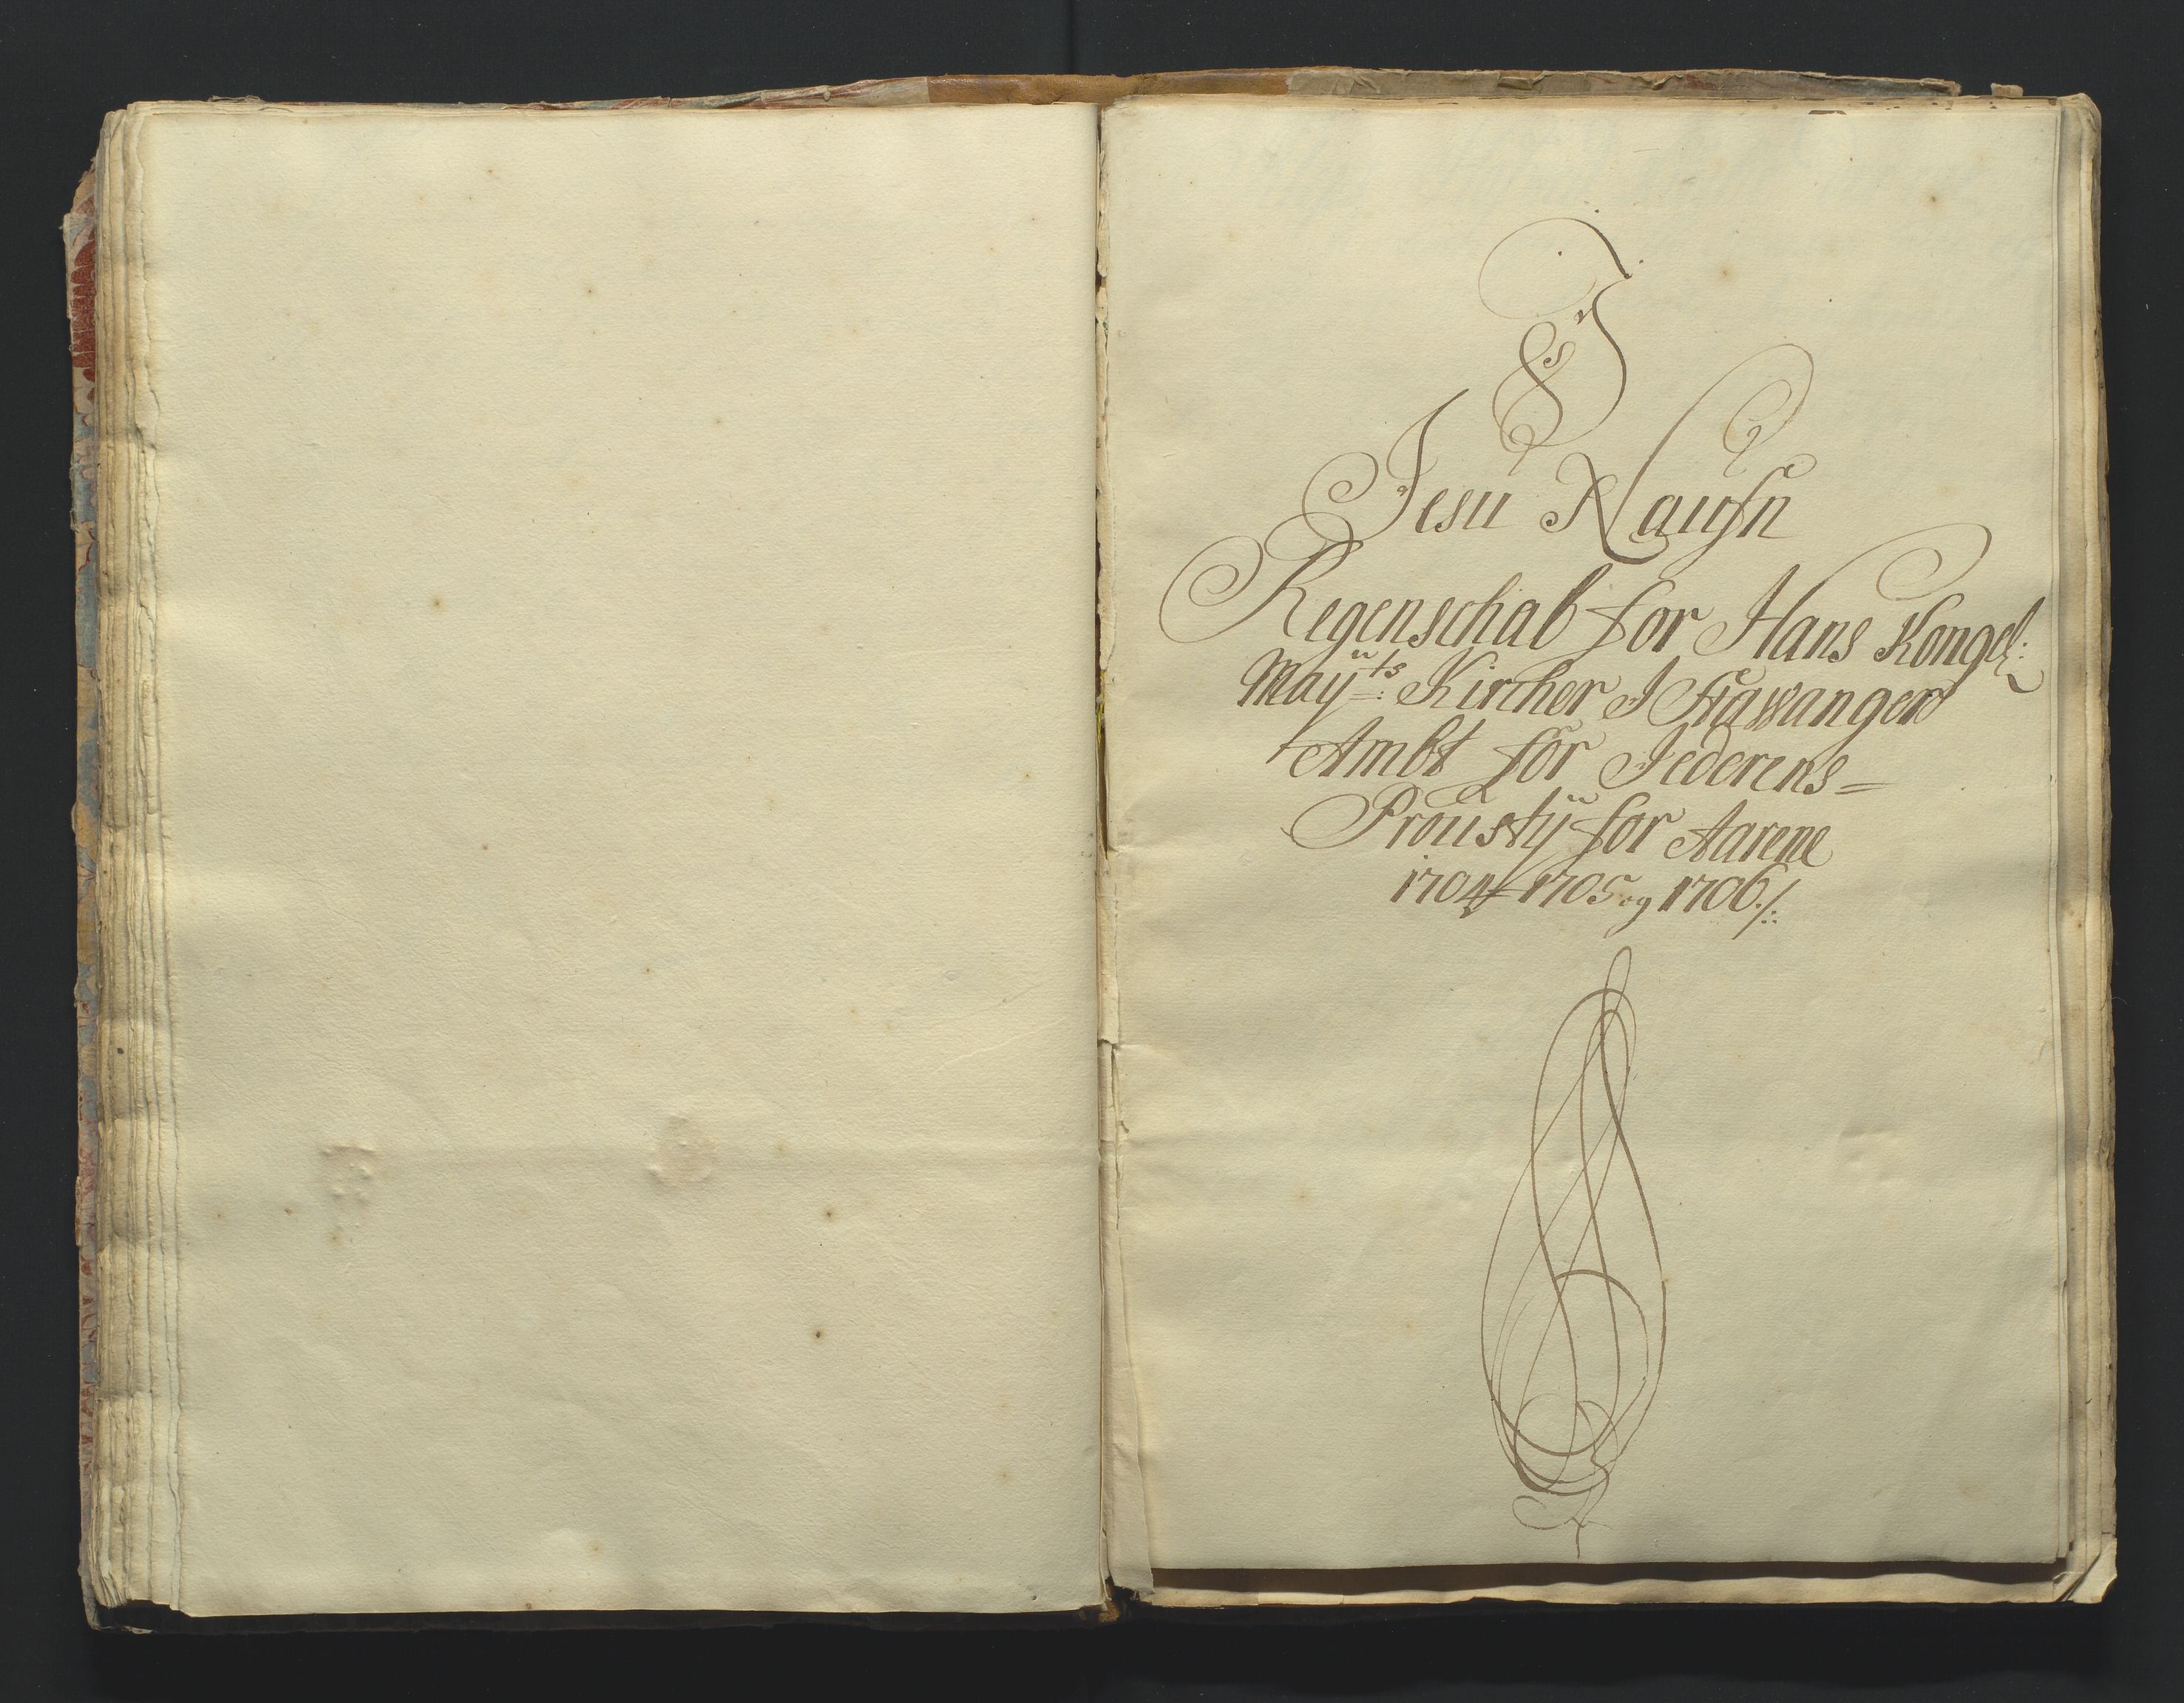 I
Jesu Naufn
Regenschab for Hans Kongel:
Maÿ:ts Kircher I Stawanger
Ambt for Jederens=
Proustÿ for Aarene
1704 1705 og 1706 ./: